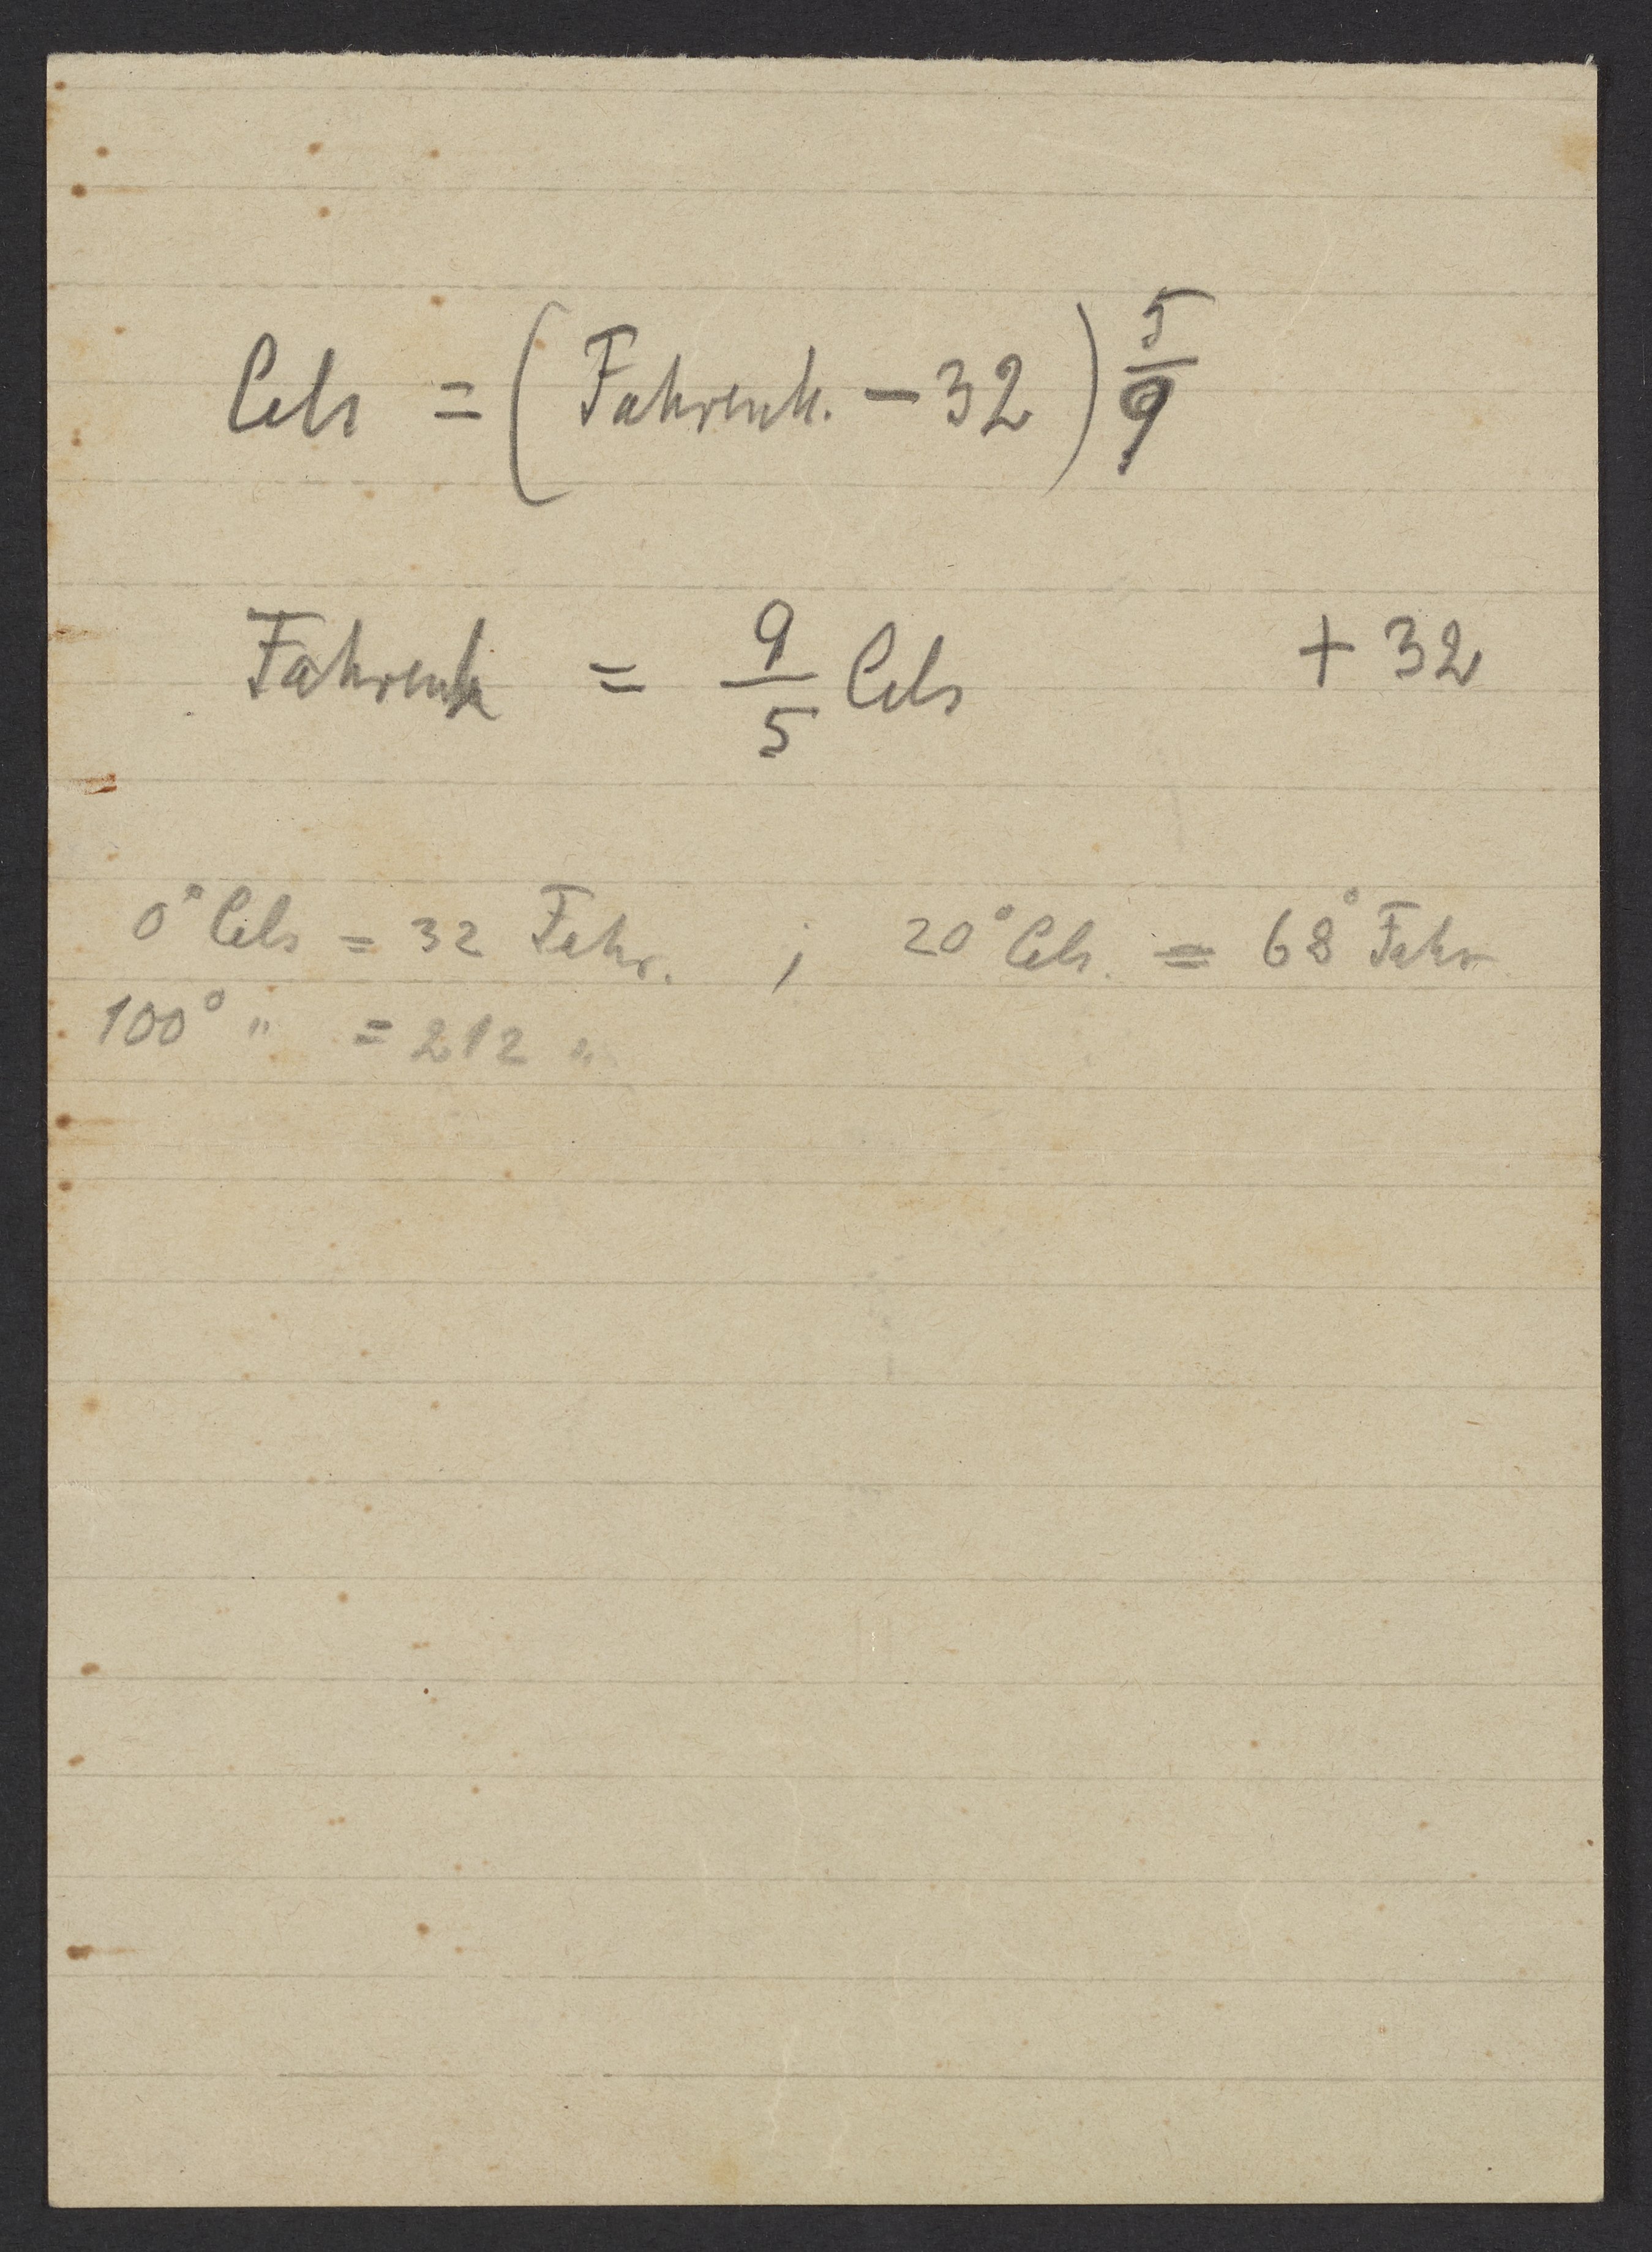 Cels = (Fahrenh. - 32) 5/9
Fahrenh = 9/5 Cels + 32
0° Cels = 32 Fahr. ; 20° Cels. = 68° Fahr
100° " = 212 "